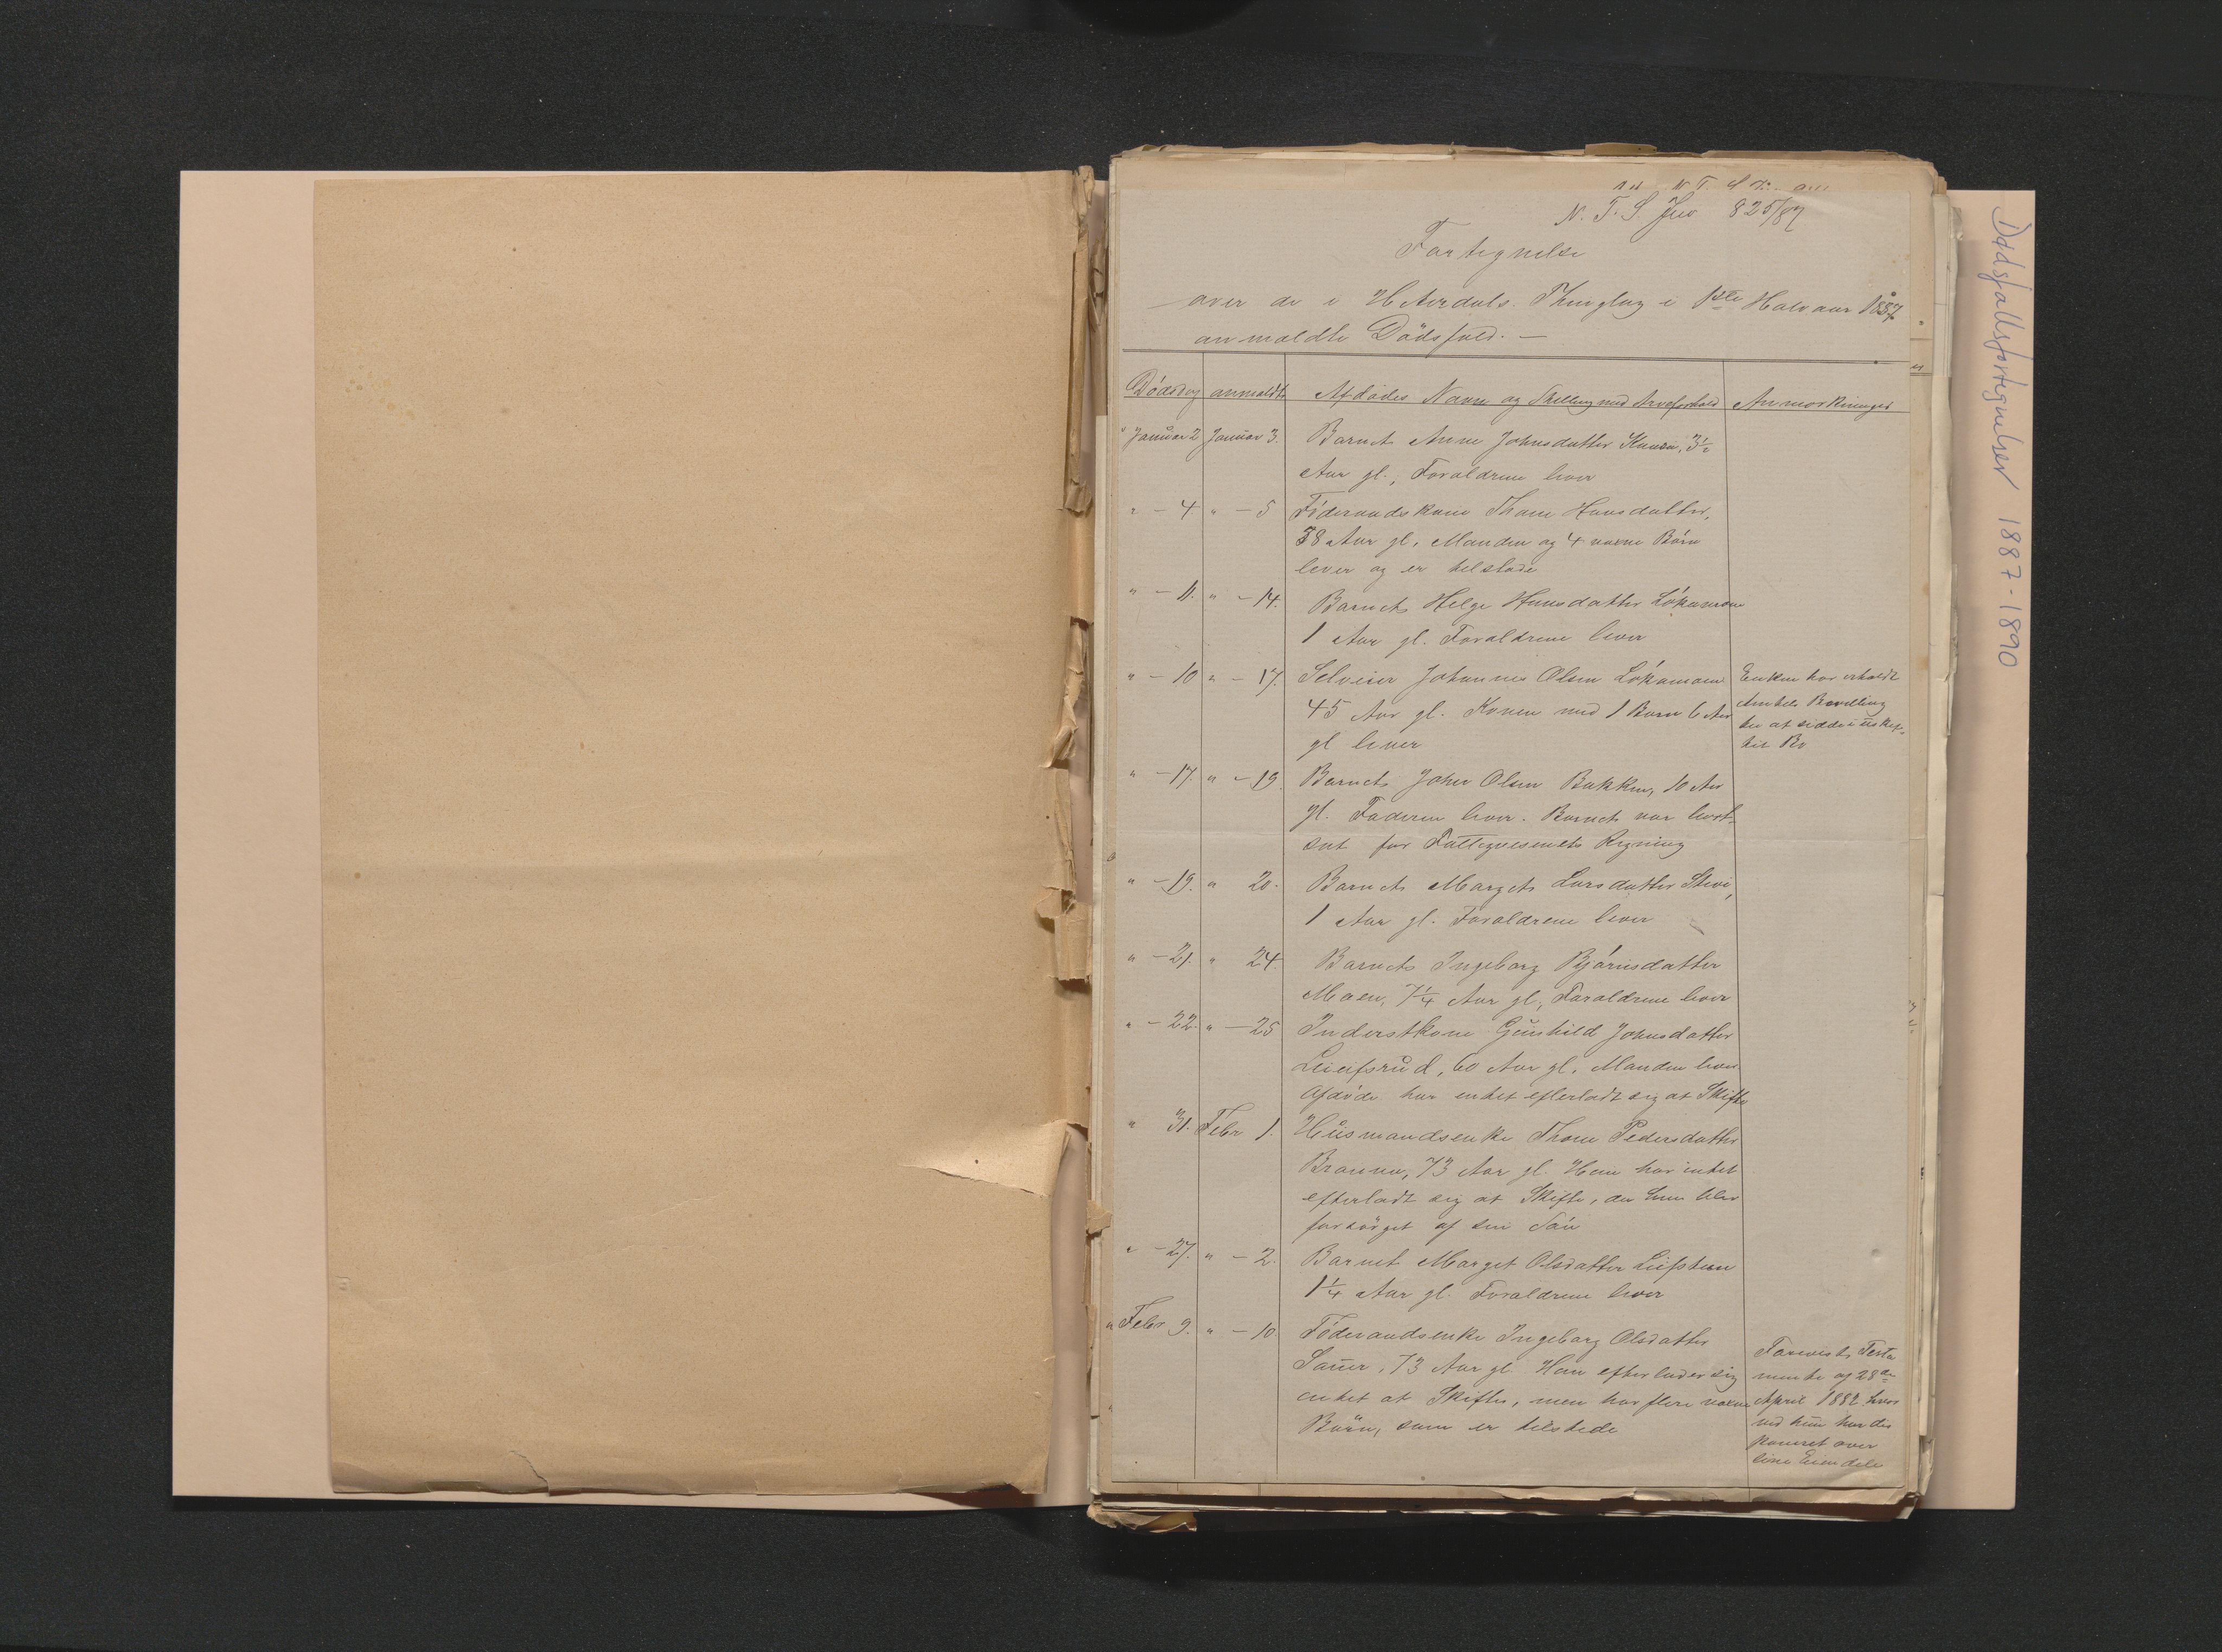 N. T. S. Jno 825/87
Fortegnelse
over de i Hiterdals Thinglag i 1ste Halvaar 1887
anmeldte Dödsfald. —
Dödsdag anmeldt Afdödes Navn og Stilling med Arveforhold Anmerkninger
Januar 2 Januar 3. Barnet Anne Johnsdatter 3½
Aar gl., Forældrene lever
" - 4 " - 5 Föderaadskone Thone Hansdatter,
58 Aar gl. Manden og 4 voxne Börn
lever og er tilstede
" - 11. " - 14. Barnet Helge Hansdatter Lökamoen
1 Aar gl. Forældrene lever
" - 10 " - 17. Selveier Johannes Olsen Lökamoen Enken har erholdt
45 Aar gl. Konen med 1 Barn 6 Aar Amtets Bevilling
til at sidde i uskif-
gl lever tet Bo
" - 17. " - 19. Barnet Olsen Bakken, 10 Aar
gl. Faderen lever. Barnet var bort-
sat for Fattigvæsenets Regning
" - 19. " 20. Barnet Marget Larsdatter
1 Aar gl. Forældrene lever
" - 21. " 24. Barnet Ingeborg Björnsdatter
Moen, 7¼ Aar gl., Forældrene lever
" - 22. " - 25 Inderstkone Gunhild Johnsdatter
60 Aar gl. Manden lever
Afdöde har intet efterladt sig at Skifte
" 31. Febr 1. Husmandsenke Thone Pedersdatter
73 Aar gl. Hun har intet
efterladt sig at Skifte, da hun blev
forsörget af sin Sön
" - 27. " - 2. Barnet Marget Olsdatter
1¼ Aar gl. Forældrene lever
" Febr 9. " - 10. Föderaadsenke Ingeborg Olsdatter
Sauer, 73 Aar gl. Hun efterlader sig Forevist Testa
intet at Skifte, men har flere voxne mente af 28de
Börn, som er tilstede April 1882 hvor
ved hun har dis
poneret over
sine Eiendele
Dødsfallsfortegnelser 1887-1890